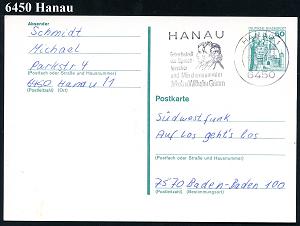 6450 Hanau
Absender
Schmidt
Michael
Parkstr 4
(Postfach oder Straße und Hausnummer)
6450 Hanau 1
(Postleitzahl) (Ort)
HANAU
Geburtsstadt
der Sprach-
forscher
und Märchensammler
Jakob und Wilhelm Grimm
HANAU 1
6450
DEUTSCHE BUNDESPOST
Postkarte
Südwestfunk
Auf Los geht's los
(Postfach oder Straße und Hausnummer)
7570 Baden-Baden 100
(Postleitzahl) (Bestimmungsort)